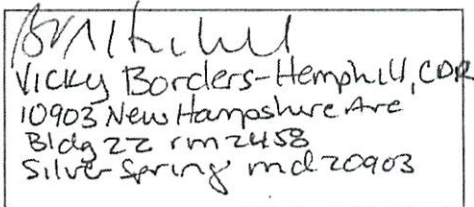 Vicky Borders-Hemphill, CDR
10903 New Hampshire Ave
Bldg 22 rm 2458
Silver Spring md 20903